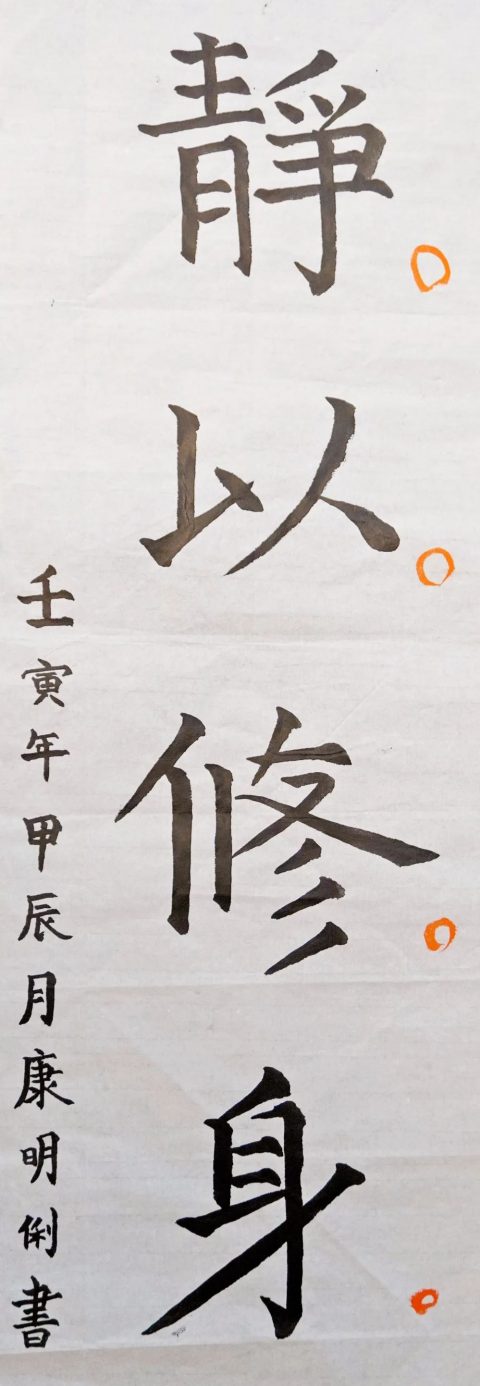 靜以修身
壬寅年甲辰月康明俐書